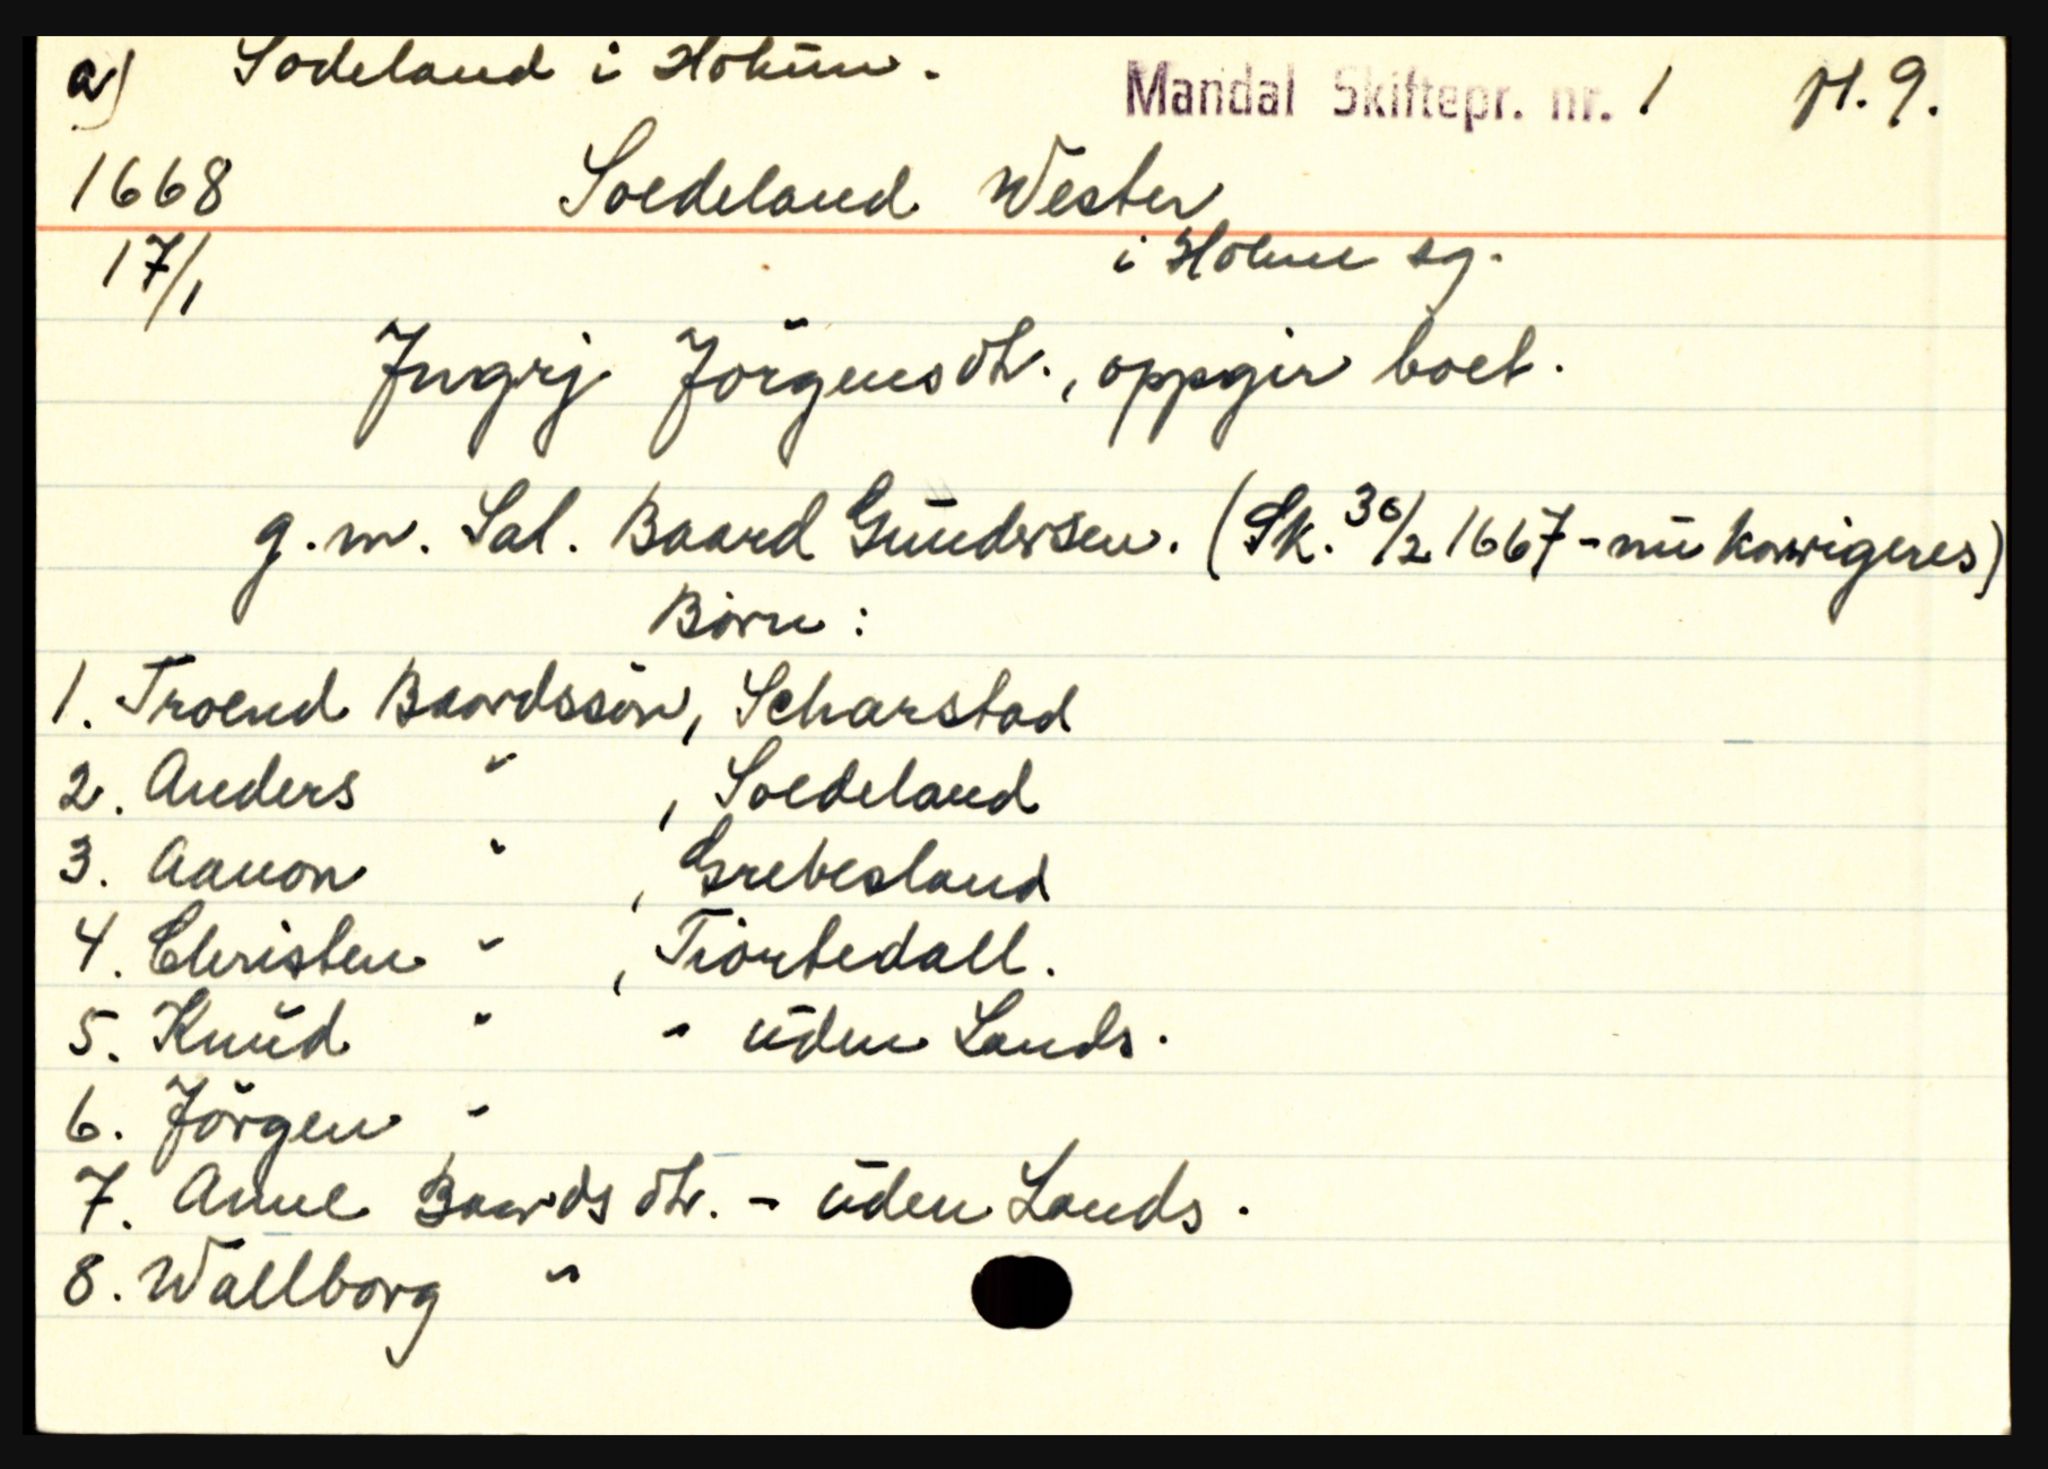 a) Sodeland i Holum. Mandal Skiftepr. nr. 1 pl. 9.
1668 Soedeland Wester
17/1 i Holme sg.
Jngrj Jörgensdtr., oppgir boet.
g.m. Sal. Baard Gŭndersen. (Sk. 30/2 1667 - nŭ korrigeres)
Börn:
1. Troend Baardssön, Scharstad
2. Anders " , Soedeland
3. Aanon " , Grebesland
4. Christen " , Tiortedall.
5. Knŭd " - ŭden Lands.
6. Jörgen "
7. Anne Baardsdtr. - ŭden Lands.
8. Wallborg "